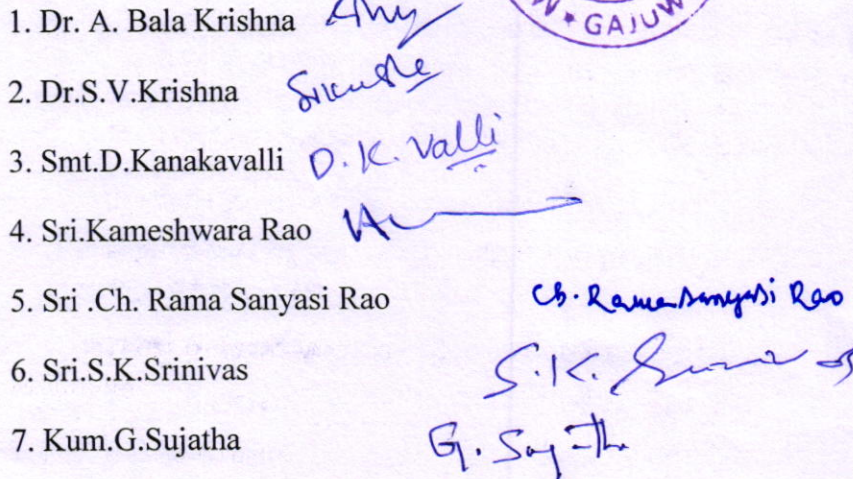 1. Dr. A. Bala Krishna
★ GAJUW
2. Dr.S.V.Krishna
3. Smt.D.Kanakavalli D.K. Valli
4. Sri.Kameshwara Rao
5. Sri .Ch. Rama Sanyasi Rao Ch. Ramasanyasi Rao
6. Sri.S.K.Srinivas S.K.
7. Kum.G.Sujatha G. Sujatha